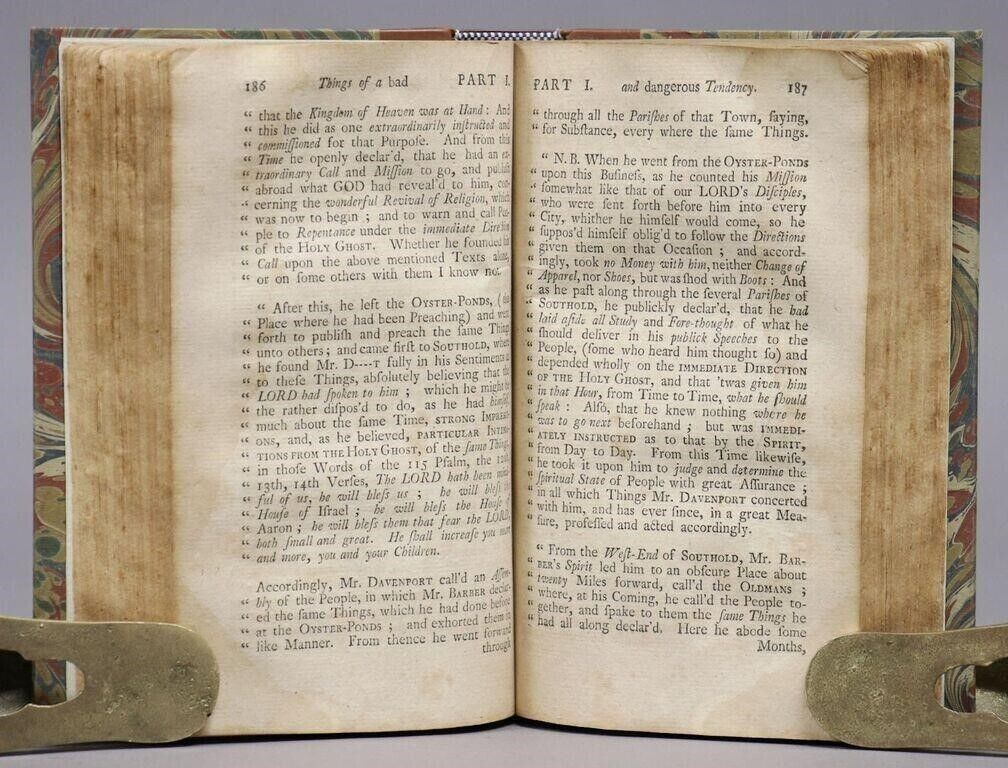 186 Things of a bad PART I.
“ that the Kingdom of Heaven was at Hand: And
“ this he did as one extraordinarily inſtructed and
“ commiſſioned for that Purpoſe. And from this
“ Time he openly declar'd, that he had an ex-
“ traordinary Call and Miſſion to go, and publiſh
“ abroad what GOD had reveal'd to him, con-
“ cerning the wonderful Revival of Religion, which
“ was now to begin; and to warn and call Peo-
“ ple to Repentance under the immediate Direction
“ of the HOLY GHOST. Whether he founded his
“ Call upon the above mentioned Texts alone,
“ or on ſome others with them I know not.
“ After this, he left the OYSTER-PONDS, (the
“ Place where he had been Preaching) and went
“ forth to publiſh and preach the ſame Things
“ unto others; and came firſt to SOUTHOLD, where
“ he found Mr. D----T fully in his Sentiments as
“ to theſe Things, abſolutely believing that the
“ LORD had ſpoken to him; which he might be
“ the rather diſpos'd to do, as he had himſelf,
“ much about the ſame Time, STRONG IMPRESSI-
“ ONS, and, as he believed, PARTICULAR INTIMA-
“ TIONS FROM THE HOLY GHOST, of the ſame Things,
“ in thoſe Words of the 115 Pſalm, the 12th,
“ 13th, 14th Verſes, The LORD hath been mind-
“ ful of us, he will bleſs us; he will bleſs the
“ Houſe of Iſrael; he will bleſs the Houſe of
“ Aaron; he will bleſs them that fear the LORD,
“ both ſmall and great. He ſhall increaſe you more
“ and more, you and your Children.
Accordingly, Mr. DAVENPORT call'd an Aſſem-
“ bly of the People, in which Mr. BARBER declar-
“ ed the ſame Things, which he had done before
“ at the OYSTER-PONDS; and exhorted them in
“ like Manner. From thence he went forward
through
PART I. and dangerous Tendency. 187
“ through all the Pariſhes of that Town, ſaying,
“ for Subſtance, every where the ſame Things.
“ N.B. When he went from the OYSTER-PONDS
“ upon this Buſineſs, as he counted his Miſſion
“ ſomewhat like that of our LORD's Diſciples,
“ who were ſent forth before him into every
“ City, whither he himſelf would come, ſo he
“ ſuppos'd himſelf oblig'd to follow the Directions
“ given them on that Occaſion; and accord-
“ ingly, took no Money with him, neither Change of
“ Apparel, nor Shoes, but was ſhod with Boots: And
“ as he paſt along through the ſeveral Pariſhes of
“ SOUTHOLD, he publickly declar'd, that he had
“ laid aſide all Study and Fore-thought of what he
“ ſhould deliver in his publick Speeches to the
“ People, (ſome who heard him thought ſo) and
“ depended wholly on the IMMEDIATE DIRECTION
“ OF THE HOLY GHOST, and that 'twas given him
“ in that Hour, from Time to Time, what he ſhould
“ ſpeak: Alſo, that he knew nothing where he
“ was to go next beforehand; but was IMMEDI-
“ ATELY INSTRUCTED as to that by the SPIRIT,
“ from Day to Day. From this Time likewiſe,
“ he took it upon him to judge and determine the
“ ſpiritual State of People with great Aſſurance;
“ in all which Things Mr. DAVENPORT concerted
“ with him, and has ever ſince, in a great Mea-
“ ſure, profeſſed and acted accordingly.
“ From the Weſt-End of SOUTHOLD, Mr. BAR-
“ BER's Spirit led him to an obſcure Place about
“ twenty Miles forward, call'd the OLDMANS;
“ where, at his Coming, he call'd the People to-
“ gether, and ſpake to them the ſame Things he
“ had all along declar'd. Here he abode ſome
Months,